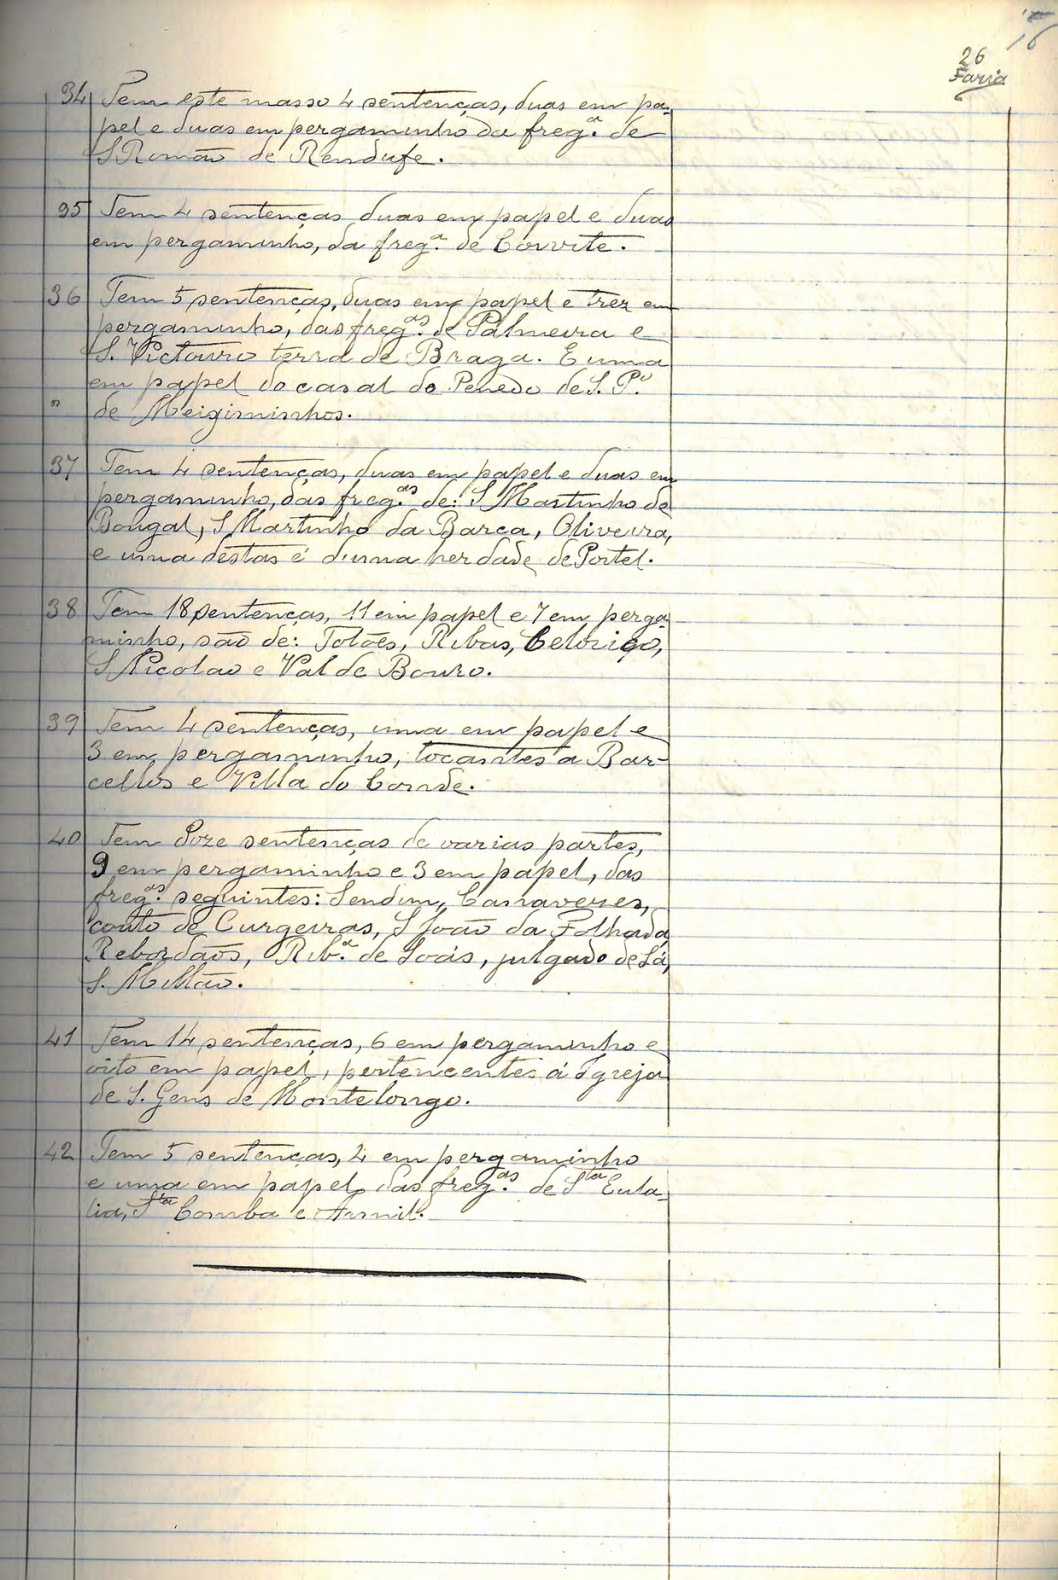 26
Faria
34 Tem este masso 4 sentenças, duas em pa-
pel e duas em pergaminho da freg.ª de
S Romão de Rendufe.
35 Tem 4 sentenças duas em papel e duas
em pergaminho, da freg.ª de Corvite.
36 Tem 5 sentenças, duas em papel e trez em
pergaminho, das freg.as de Palmeira e
S. Victouro terra de Braga. E uma
em papel do casal do Penedo de S. P.º
" de Meigiminhos.
37 Tem 4 sentenças, duas em papel e duas em
pergaminho, das freg.as de: S Martinho do
Bougal, S Martinho da Barca, Oliveira,
e uma destas é d'uma herdade de Portel.
38 Tem 18 sentenças, 11 em papel e 7 em perga
minho, são de: Tolões, Ribas, Celorigo,
S Nicolao e Val de Bouro.
39 Tem 4 sentenças, uma em papel e
3 em pergaminho, tocantes a Bar-
cellos e Villa do Conde.
40 Tem doze sentenças de varias partes,
9 em pergaminho e 3 em papel, das
freg.as seguintes: Sendim, Canavezes,
couto de Curgeiras, S João da Folhada,
Rebordãos, Rib.ª de Soás, julgado de Lá,
S. Millão.
41 Tem 14 sentenças, 6 em pergaminho e
oito em papel, pertencentes á Igreja
de S. Gens de Montelongo.
42 Tem 5 sentenças, 4 em pergaminho
e uma em papel das freg.as de Sta Eula-
lia, Sta Comba e Armil.